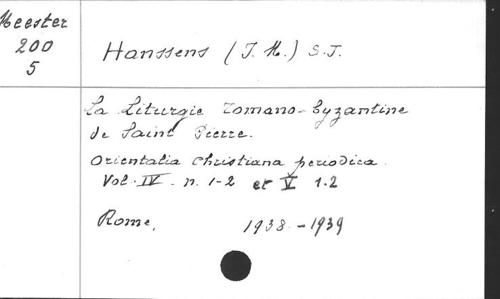 Meester
200
5
Hanssens (J. M.) S.J.
La Liturgie romano-byzantine
de Saint Pierre.
Orientalia Christiana periodica.
Vol. IV - n. 1-2 et V 1.2
Rome, 1938 - 1939